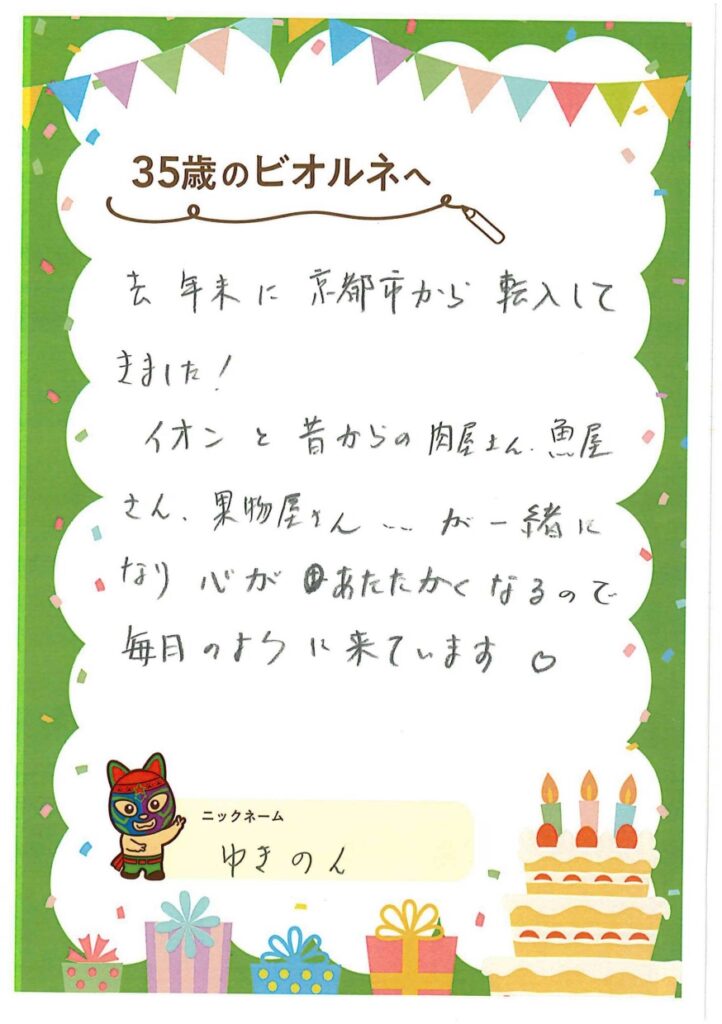 35歳のビオルネへ
去年末に京都市から転入して
きました!
イオンと昔からの肉屋さん、魚屋
さん、果物屋さん……が一緒に
なり心があたたかくなるので
毎月のように来ています♡
ニックネーム
ゆきのん